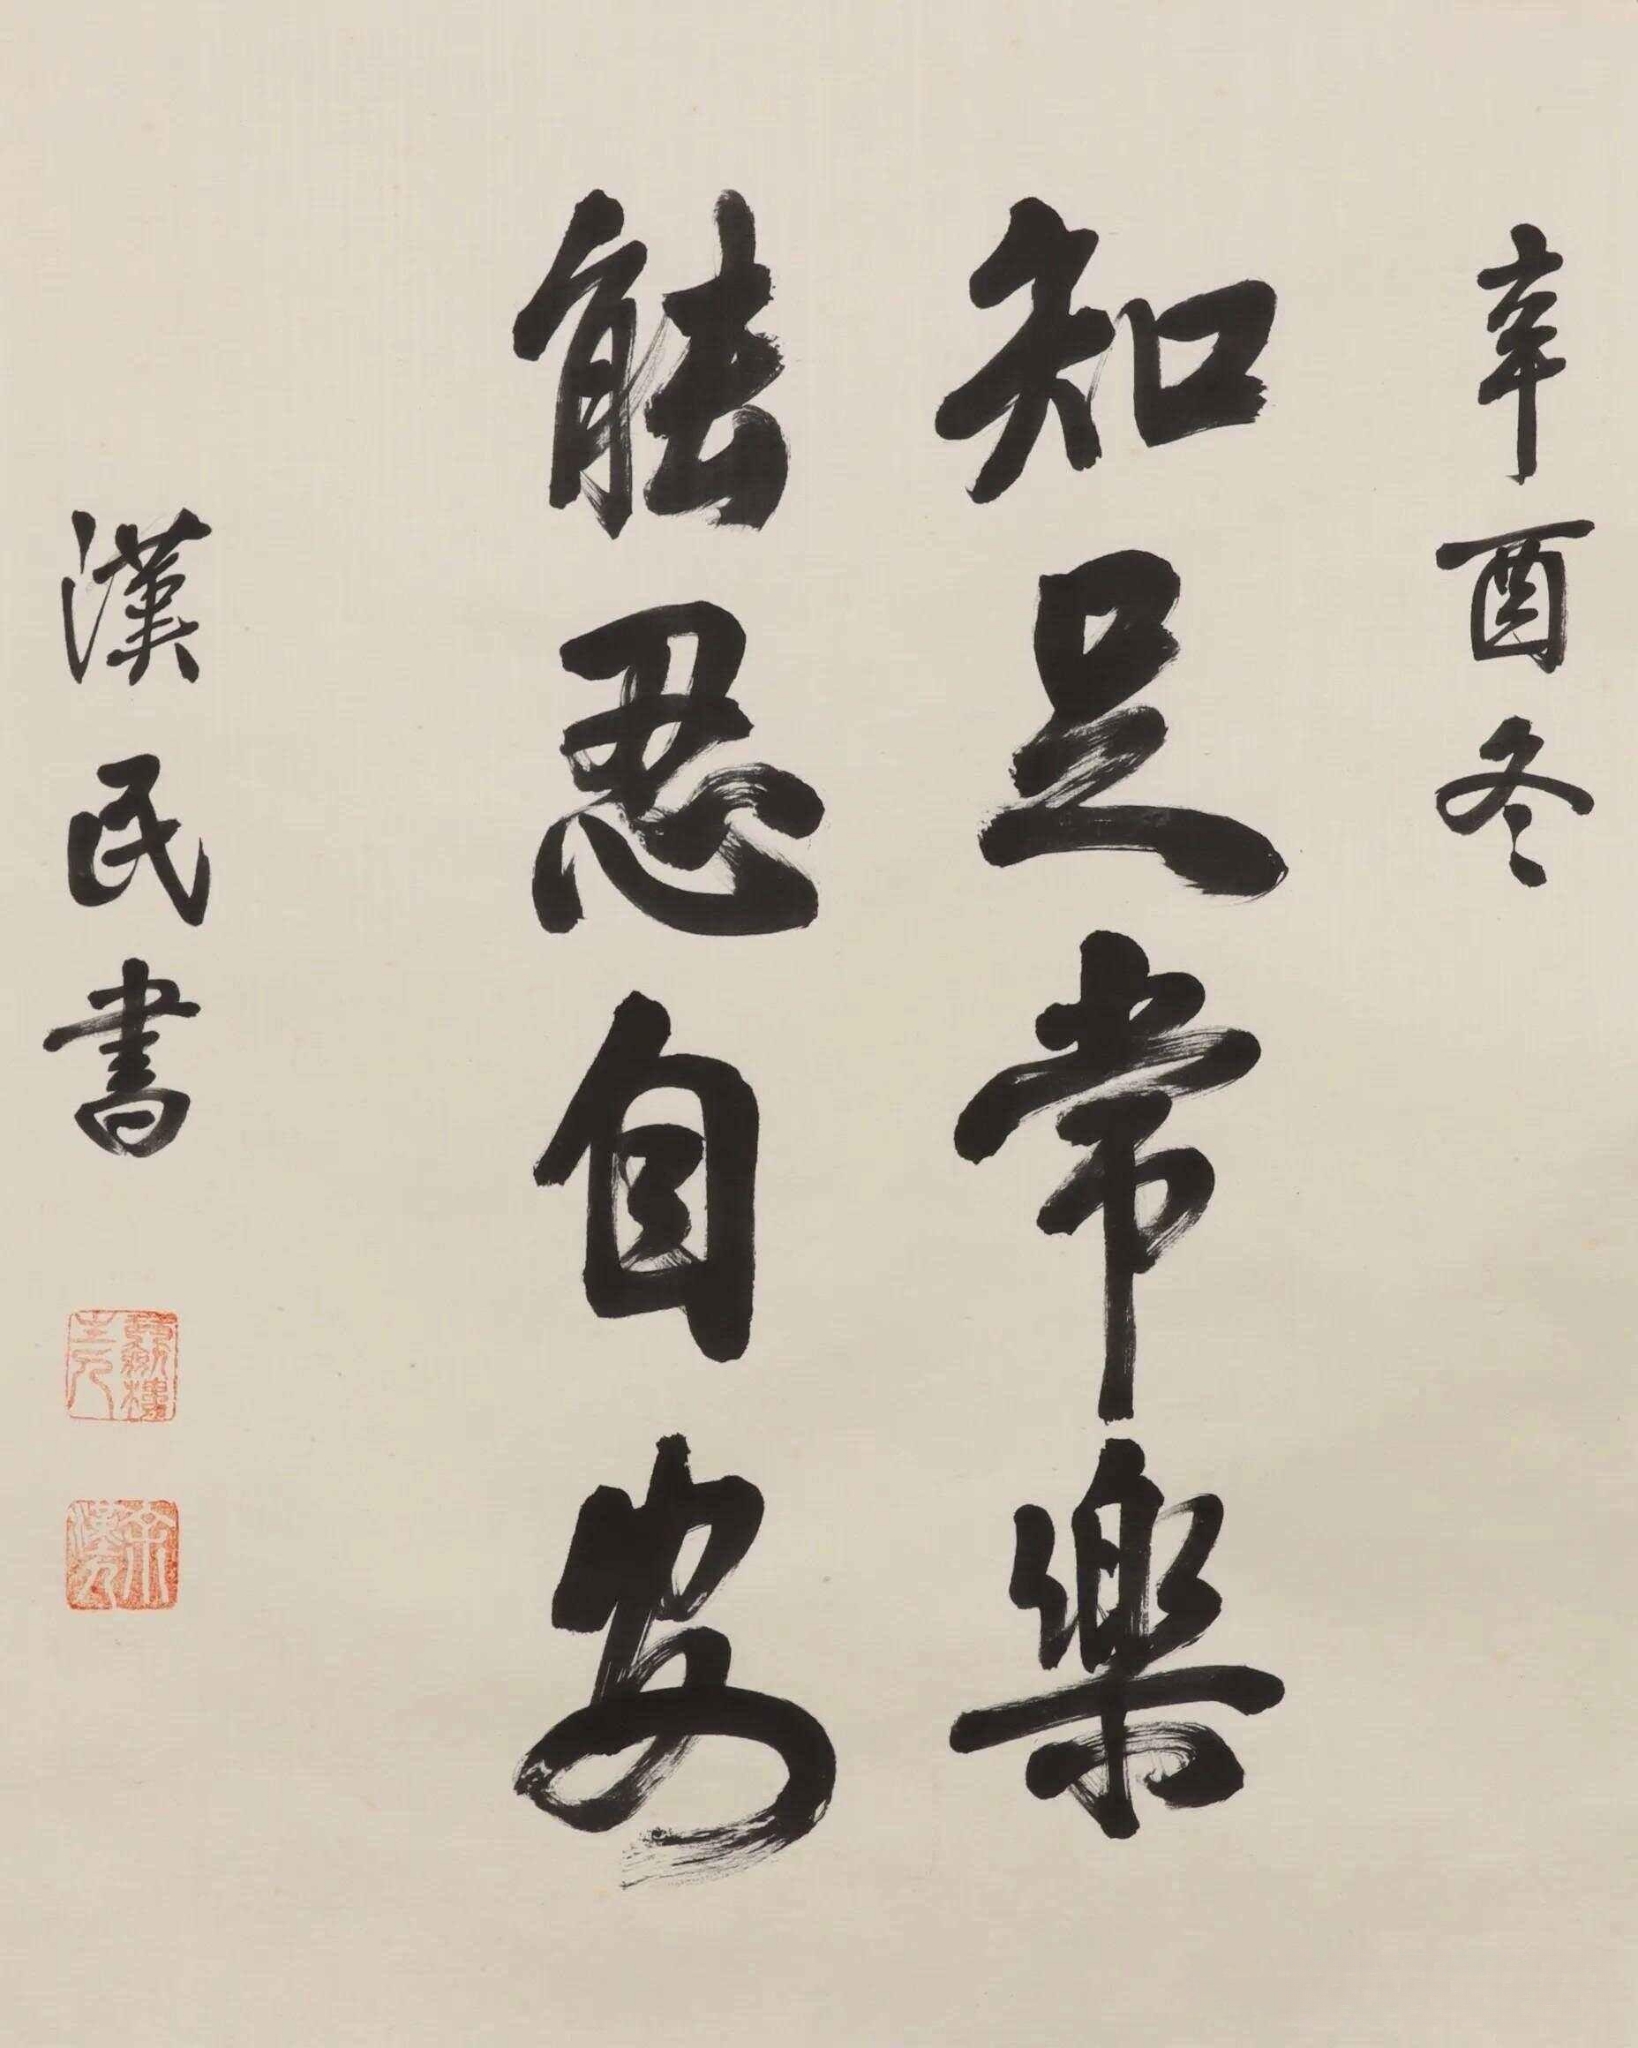 辛酉冬
知足常樂
能忍自安
漢民書